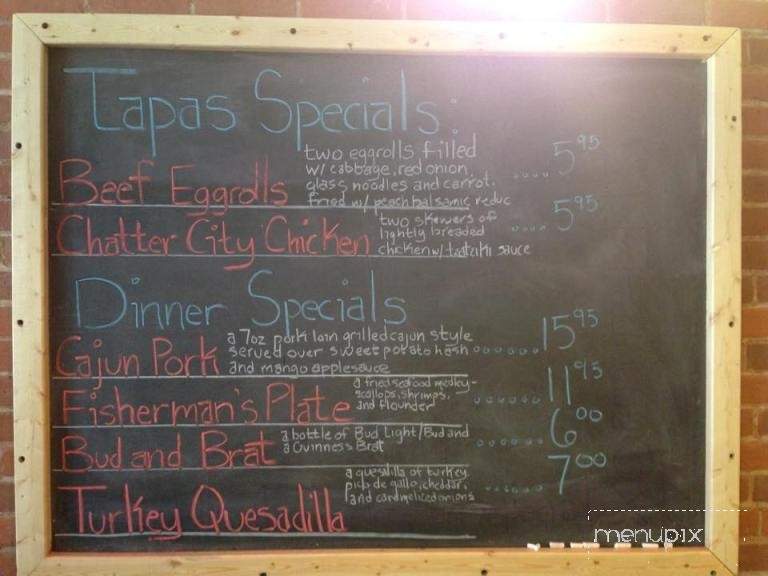 Tapas Specials:
Beef Eggrolls
two eggrolls filled
w/ cabbage, red onion,
glass noodles and carrot.
fried w/ peach balsamic reduc
.... 5.95
Chatter City Chicken
two skewers of
lightly breaded
chicken w/ tzatziki sauce
.... 5.95
Dinner Specials
Cajun Pork
a 7oz pork loin grilled cajun style
served over sweet potato hash
and mango applesauce
15.95
Fisherman's Plate
a fried seafood medley-
scallops, shrimps,
and flounder
11.95
Bud and Brat
a bottle of Bud Light/Bud and
a Guinness Brat
6.00
Turkey Quesadilla
a quesadilla of turkey
pico de gallo, cheddar,
and cardmelized onions
7.00
menupix